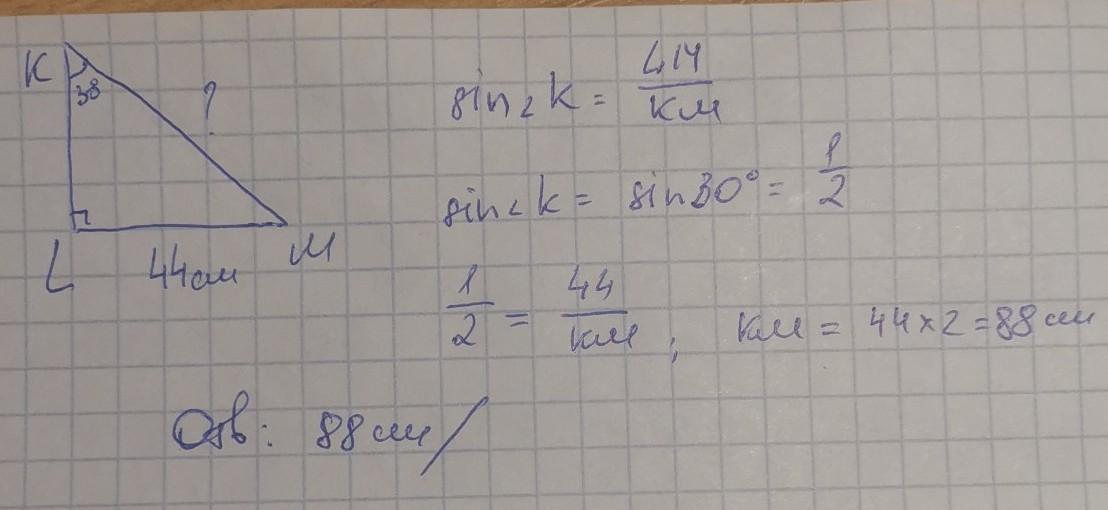 K
30°
?
L
44см
М
sin∠K = 44/КМ
sin∠K = sin30° = 1/2
1/2 = 44/КМ ; КМ = 44×2=88см
Отв: 88см/